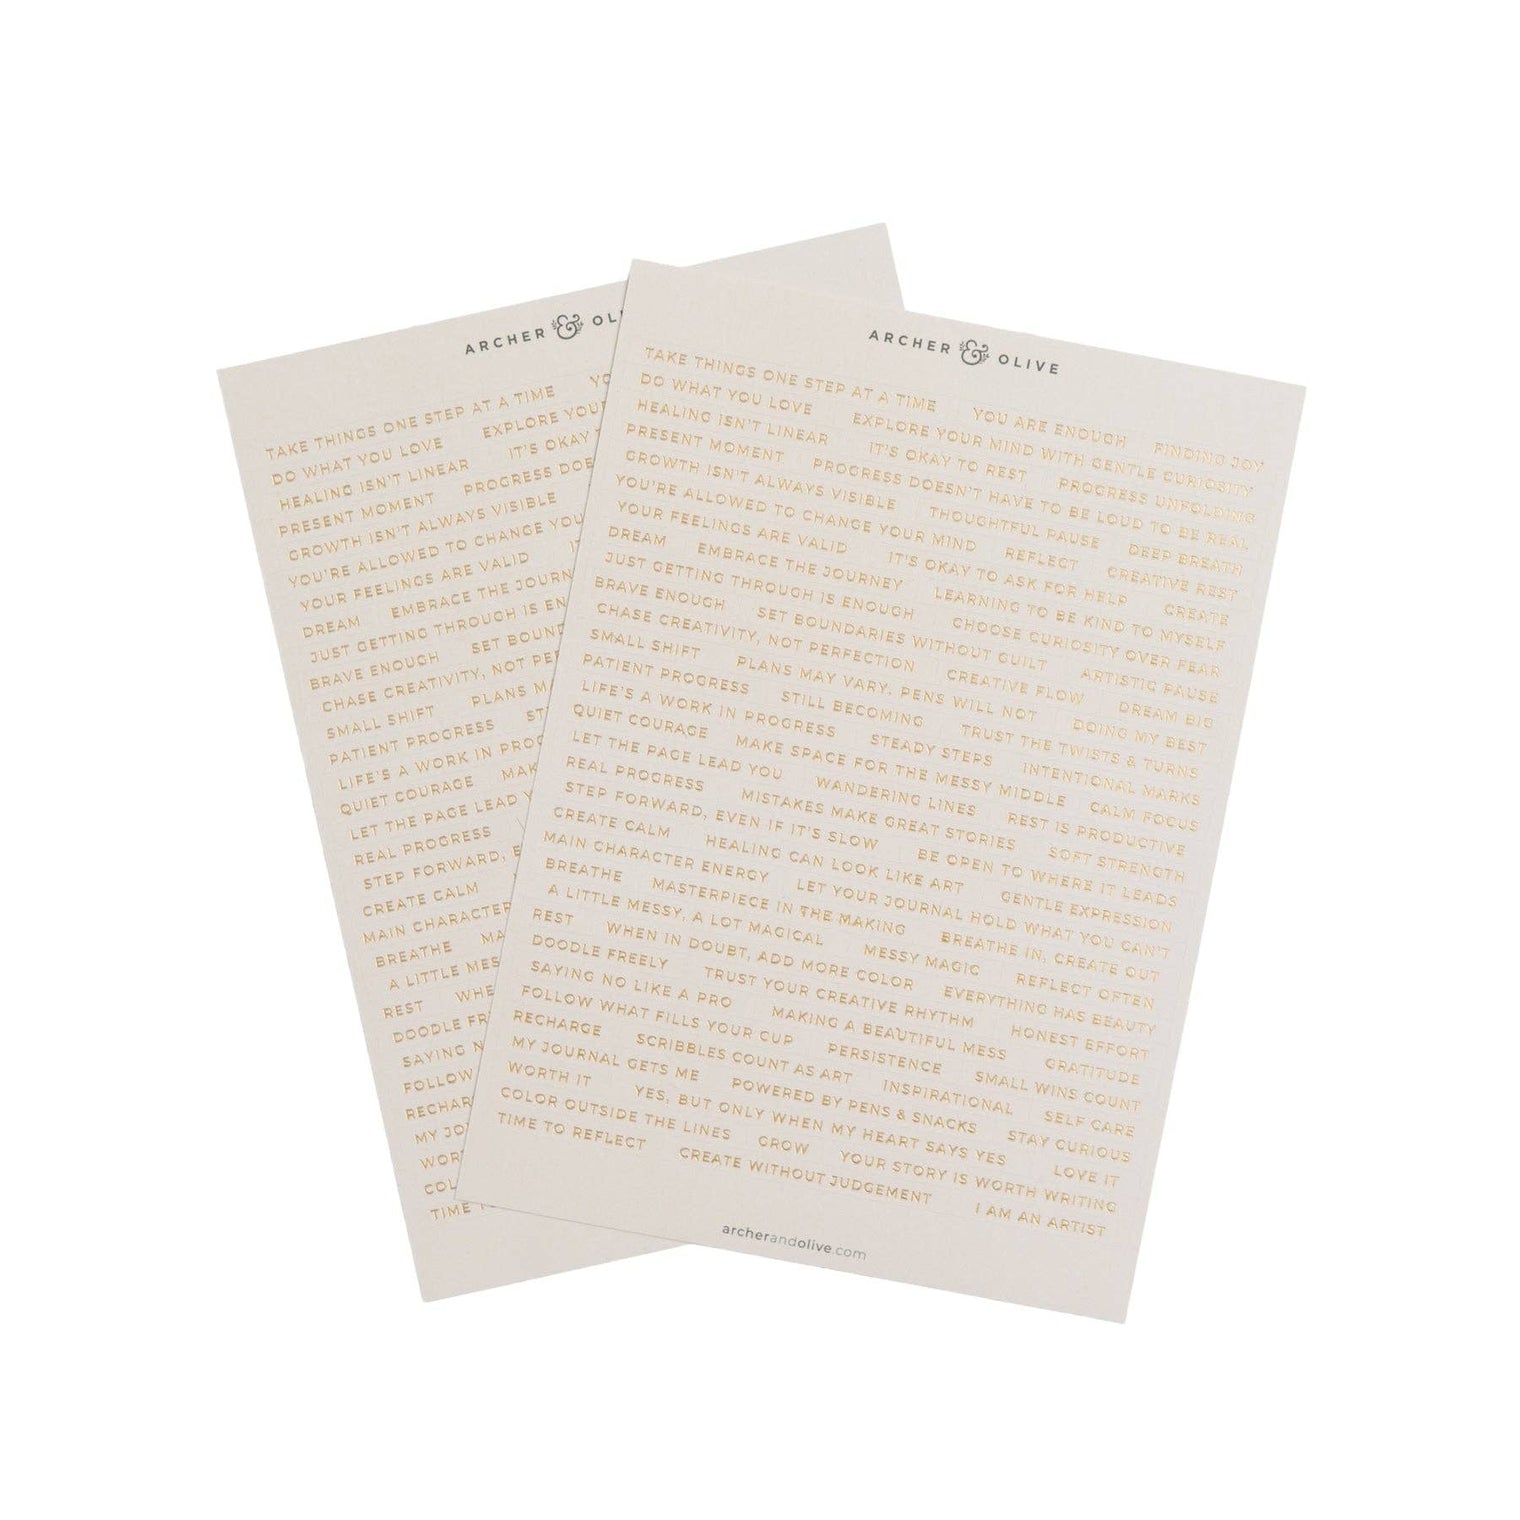 ARCHER & OL
TAKE THINGS ONE STEP AT A TIME YO
DO WHAT YOU LOVE EXPLORE YOUR
HEALING ISN'T LINEAR IT'S OKAY T
PRESENT MOMENT PROGRESS DOE
GROWTH ISN'T ALWAYS VISIBLE
YOU'RE ALLOWED TO CHANGE YOU
YOUR FEELINGS ARE VALID
DREAM EMBRACE THE JOURN
JUST GETTING THROUGH IS EN
BRAVE ENOUGH SET BOUND
CHASE CREATIVITY, NOT PER
SMALL SHIFT PLANS M
PATIENT PROGRESS ST
LIFE'S A WORK IN PROG
QUIET COURAGE MAK
LET THE PAGE LEAD Y
REAL PROGRESS
STEP FORWARD, E
CREATE CALM
MAIN CHARACTER
BREATHE MA
A LITTLE MES
REST WHE
DOODLE FR
SAYING N
FOLLOW
RECHAR
MY JO
WOR
COL
TIME T
ARCHER & OLIVE
TAKE THINGS ONE STEP AT A TIME YOU ARE ENOUGH FINDING JOY
DO WHAT YOU LOVE EXPLORE YOUR MIND WITH GENTLE CURIOSITY
HEALING ISN'T LINEAR IT'S OKAY TO REST PROGRESS UNFOLDING
PRESENT MOMENT PROGRESS DOESN'T HAVE TO BE LOUD TO BE REAL
GROWTH ISN'T ALWAYS VISIBLE THOUGHTFUL PAUSE DEEP BREATH
YOU'RE ALLOWED TO CHANGE YOUR MIND REFLECT CREATIVE REST
YOUR FEELINGS ARE VALID IT'S OKAY TO ASK FOR HELP CREATE
DREAM EMBRACE THE JOURNEY LEARNING TO BE KIND TO MYSELF
JUST GETTING THROUGH IS ENOUGH CHOOSE CURIOSITY OVER FEAR
BRAVE ENOUGH SET BOUNDARIES WITHOUT GUILT ARTISTIC PAUSE
CHASE CREATIVITY, NOT PERFECTION CREATIVE FLOW DREAM BIG
SMALL SHIFT PLANS MAY VARY, PENS WILL NOT DOING MY BEST
PATIENT PROGRESS STILL BECOMING TRUST THE TWISTS & TURNS
LIFE'S A WORK IN PROGRESS STEADY STEPS INTENTIONAL MARKS
QUIET COURAGE MAKE SPACE FOR THE MESSY MIDDLE CALM FOCUS
LET THE PAGE LEAD YOU WANDERING LINES REST IS PRODUCTIVE
REAL PROGRESS MISTAKES MAKE GREAT STORIES SOFT STRENGTH
STEP FORWARD, EVEN IF IT'S SLOW BE OPEN TO WHERE IT LEADS
CREATE CALM HEALING CAN LOOK LIKE ART GENTLE EXPRESSION
MAIN CHARACTER ENERGY LET YOUR JOURNAL HOLD WHAT YOU CAN'T
BREATHE MASTERPIECE IN THE MAKING BREATHE IN, CREATE OUT
A LITTLE MESSY, A LOT MAGICAL MESSY MAGIC REFLECT OFTEN
REST WHEN IN DOUBT, ADD MORE COLOR EVERYTHING HAS BEAUTY
DOODLE FREELY TRUST YOUR CREATIVE RHYTHM HONEST EFFORT
SAYING NO LIKE A PRO MAKING A BEAUTIFUL MESS GRATITUDE
FOLLOW WHAT FILLS YOUR CUP PERSISTENCE SMALL WINS COUNT
RECHARGE SCRIBBLES COUNT AS ART INSPIRATIONAL SELF CARE
MY JOURNAL GETS ME POWERED BY PENS & SNACKS STAY CURIOUS
WORTH IT YES, BUT ONLY WHEN MY HEART SAYS YES LOVE IT
COLOR OUTSIDE THE LINES GROW YOUR STORY IS WORTH WRITING
TIME TO REFLECT CREATE WITHOUT JUDGEMENT I AM AN ARTIST
archerandolive.com